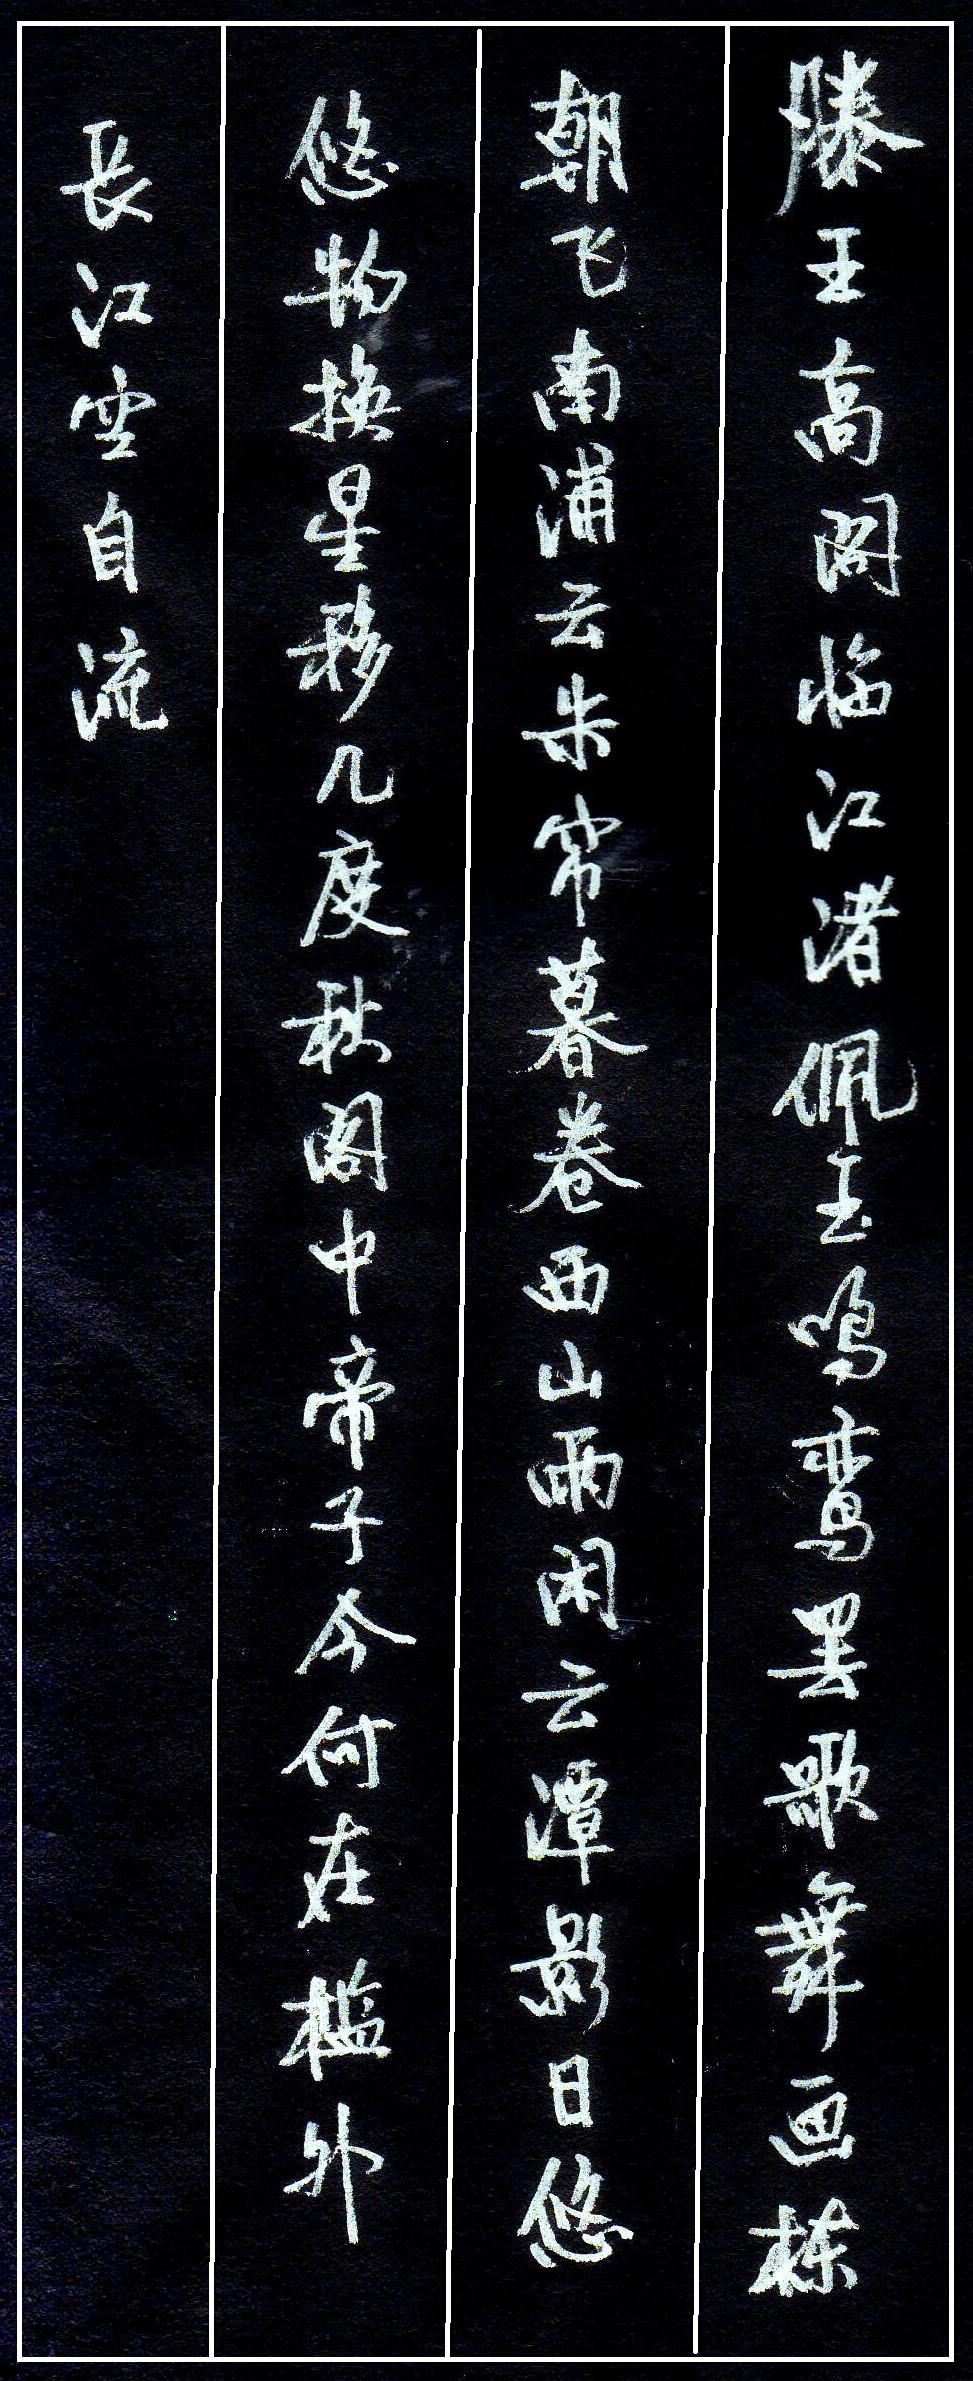 滕王高阁临江渚佩玉鸣鸾罢歌舞画栋
朝飞南浦云朱帘暮卷西山雨闲云潭影日悠
悠物换星移几度秋阁中帝子今何在槛外
长江空自流